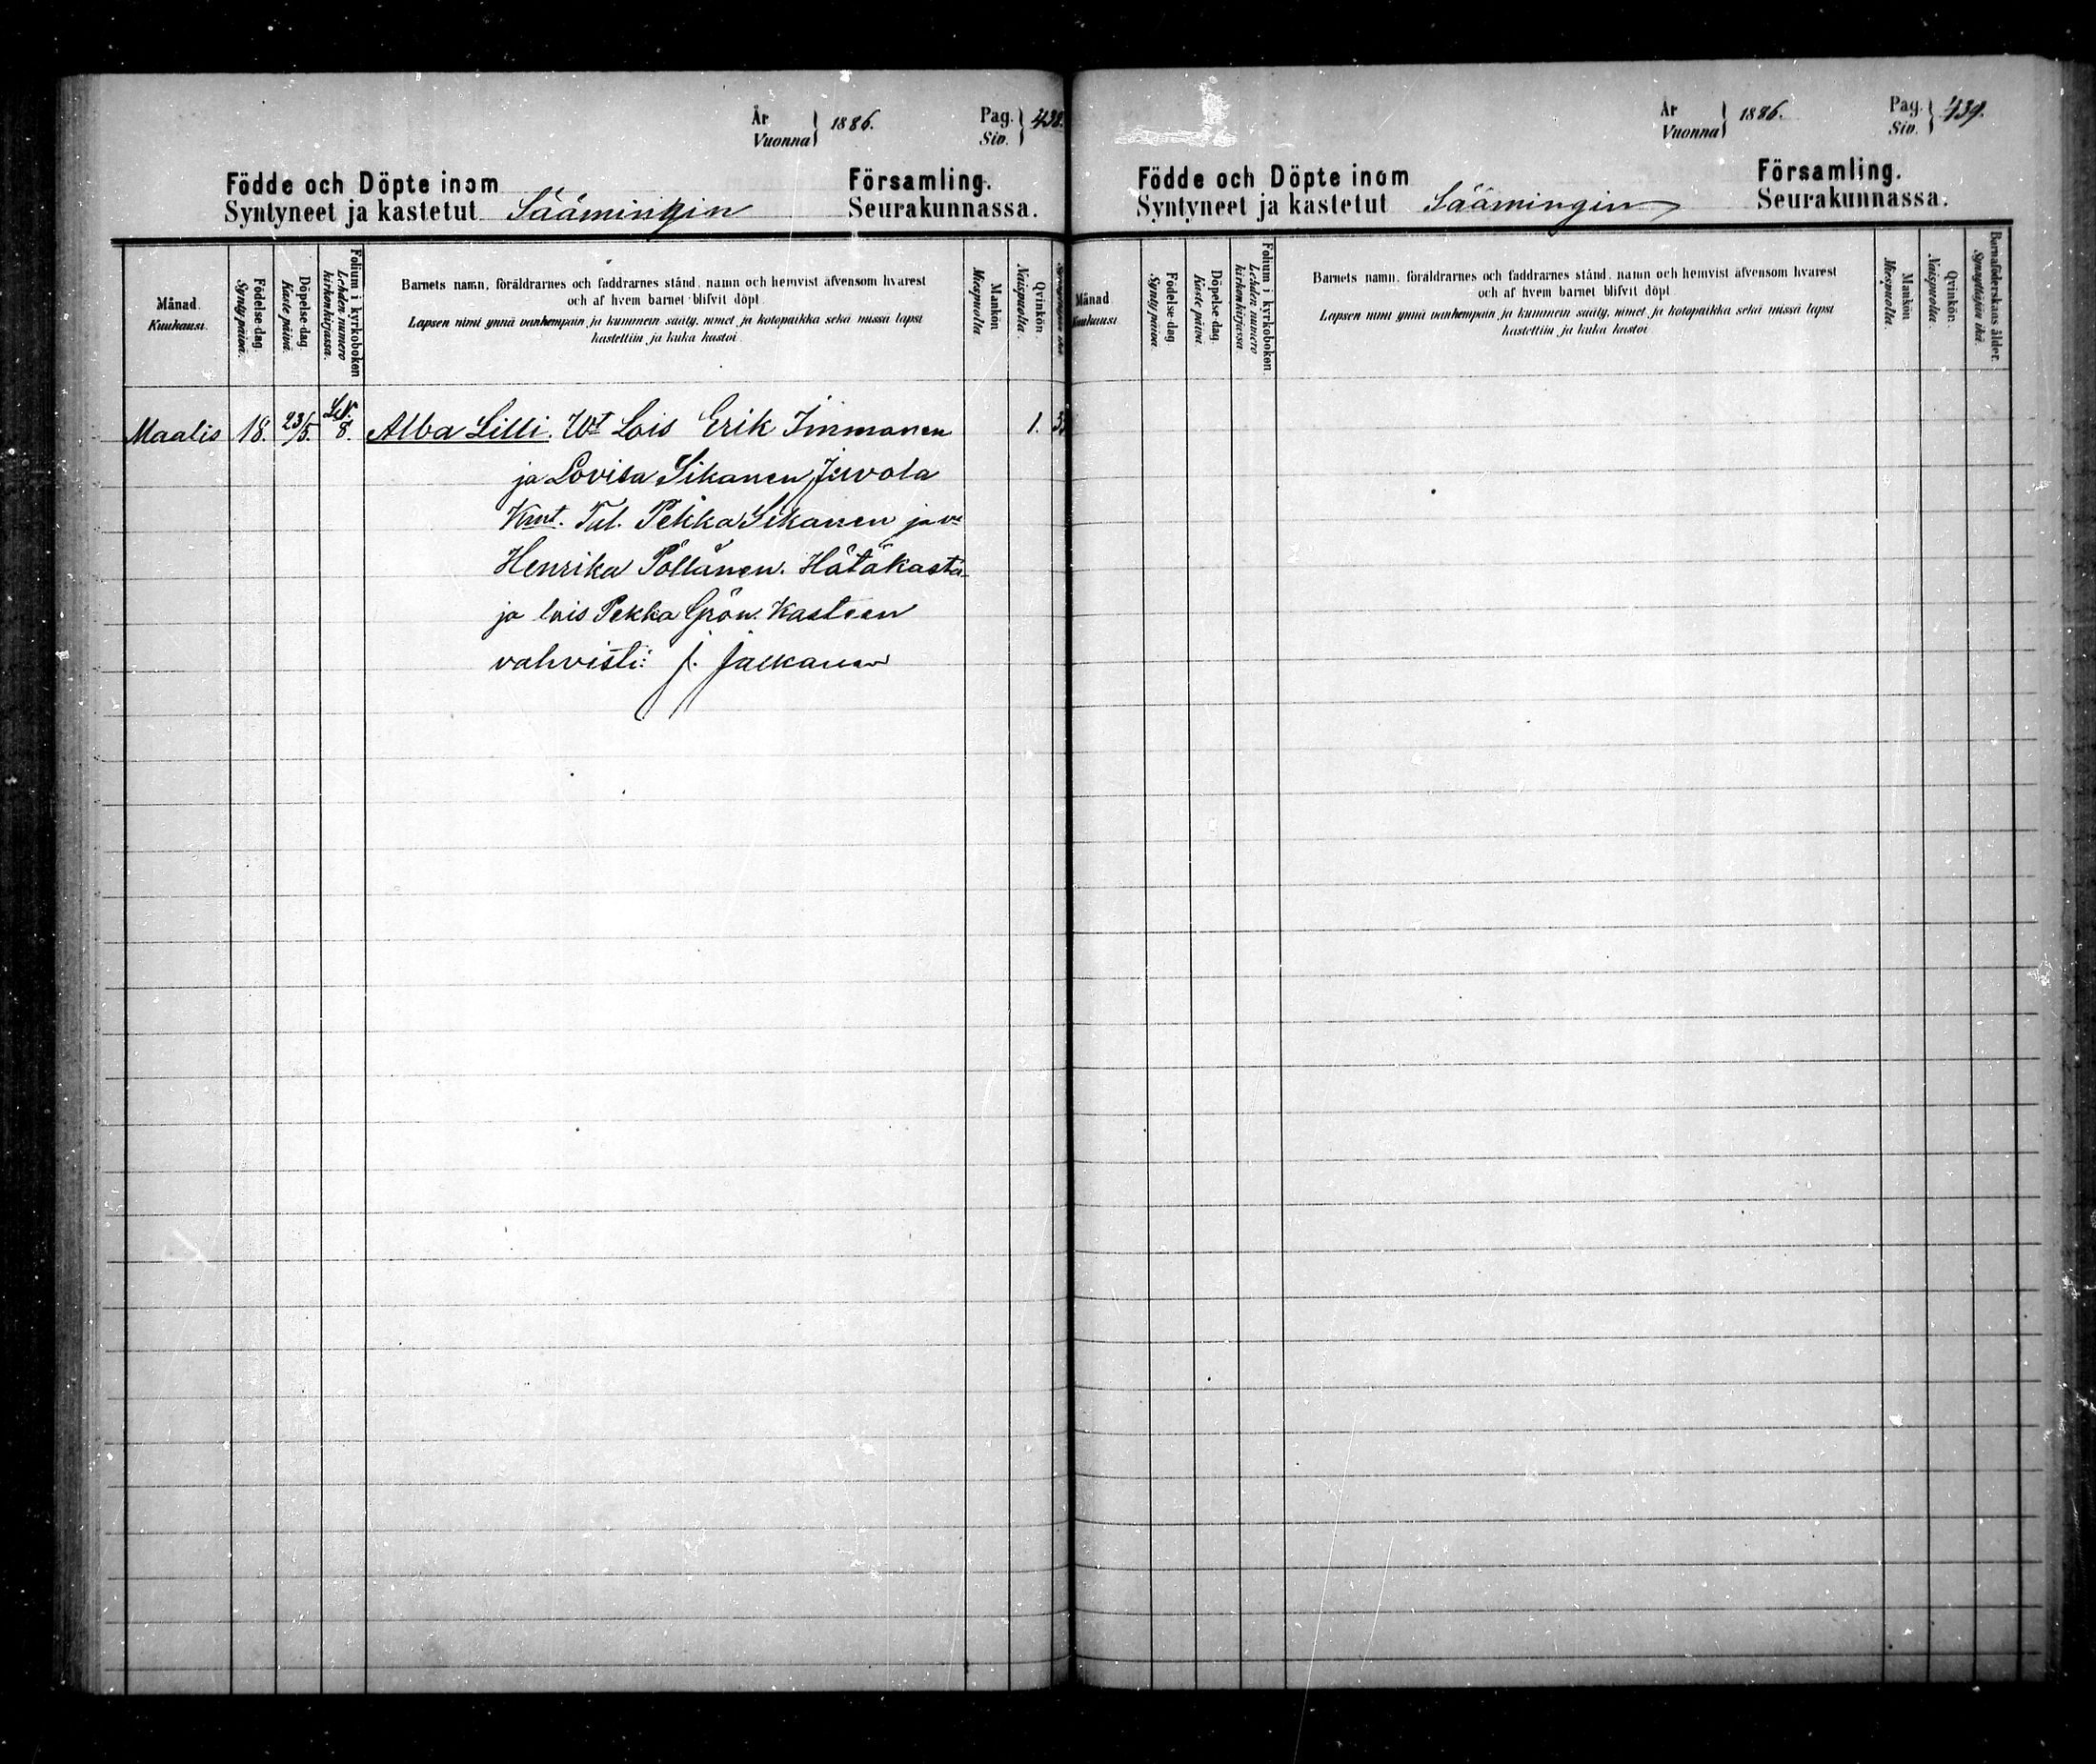 År
Vuonna } 1886.
Pag.
Siv. } 438.
Födde och Döpte inom Församling.
Syntyneet ja kastetut Säämingin Seurakunnassa.
Månad.
Kuukausi.
Födelse-dag.
Synty-päivä.
Döpelse-dag.
Kaste-päivä.
Folium i kyrkoboken
Lehden numero
kirkonkirjassa.
Barnets namn, föräldrarnes och faddrarnes stånd, namn och hemvist äfvensom hvarest
och af hvem barnet blifvit döpt.
Lapsen nimi ynnä vanhempain ja kummein sääty, nimet ja kotopaikka sekä missä lapsi
kastettiin ja kuka kastoi.
Mankön
Miespuolta
Qvinkön.
Naispuolta.
Maalis 18. 23/5. 8. Alba Lilli. Wt Lois Erik Immonen 1.
ja Lovisa Sikanen Juvola
Kmt. Tal. Pekka Sikanen ja vo
Henrika Pöllänen. Hätäkasta-
ja lois Pekka Grön. Kasteen
vahvisti: J. Jalkanen
År
Vuonna } 1886.
Pag.
Siv. } 439.
Födde och Döpte inom Församling.
Syntyneet ja kastetut Säämingin Seurakunnassa.
Månad
Kuukausi
Födelse-dag.
Synty-päivä.
Döpelse-dag.
Kaste-päivä.
Folium i kyrkoboken.
Lehden numero
kirkonkirjassa
Barnets namn, föräldrarnes och faddrarnes stånd, namn och hemvist äfvensom hvarest
och af hvem barnet blifvit döpt.
Lapsen nimi ynnä vanhempain ja kummein sääty, nimet ja kotopaikka sekä missä lapsi
kastettiin ja kuka kastoi.
Mankön
Miespuolta.
Qvinkön.
Naispuolta.
Barnaföderskans ålder.
Synnyttäjän ikä.